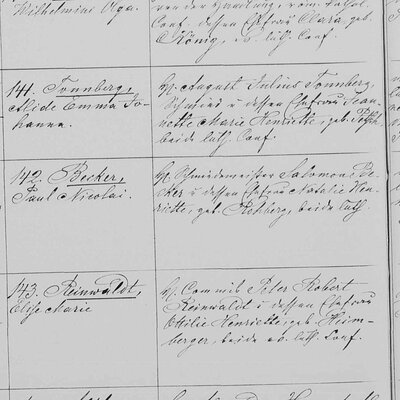 Wilhelmine Olga.
von der Handlung, vom luth.
Conf. dessen Ehefrau Clara, geb.
König, ev. luth. Conf.
141. Tonnberg,
Alide Emma Jo-
hanna.
H. August Julius Tonnberg,
Schmied u. dessen Ehefrau Jean-
nette Marie Henriette, geb.
beide luth. Conf.
142. Becker,
Paul Nicolai.
H. Schneidermeister Salomon Be-
cker u. dessen Ehefrau Natalie Hen-
riette, geb. Rehberg, beide luth.
143. Reinwaldt,
Elise Marie
H. Commis Peter Robert
Reinwaldt u. dessen Ehefrau
Ottilie Henriette, geb. Heim-
berger, beide ev. luth. Conf.